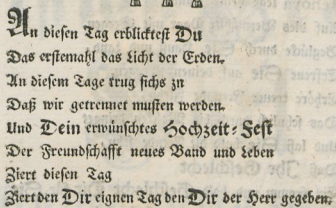 An diesen Tag erblicktest Du
Das erstemahl das Licht der Erden.
An diesem Tage trug sichs zu
Daß wir getrennet musten werden.
Und Dein erwünschtes Hochzeit-Fest
Der Freundschafft neues Band und Leben
Ziert diesen Tag
Ziert den Dir eignen Tag den Dir der Herr gegeben.